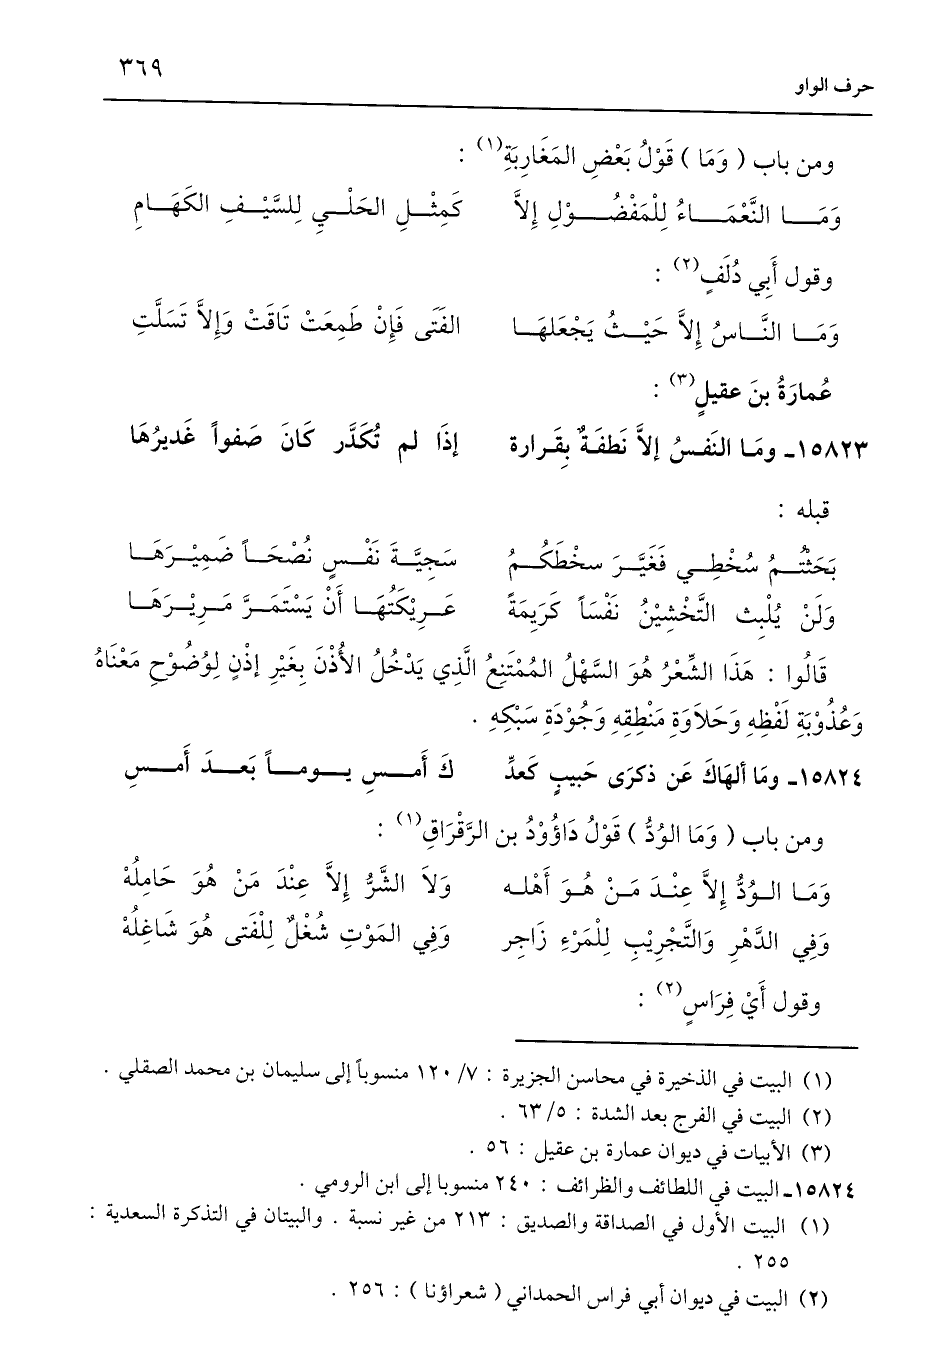 حرف الواو ٣٦٩
ومن باب ( وَمَا ) قَوْلُ بَعْضِ المَغَارِبَةِ(١) :
وَمَــا النَّعْمَــاءُ لِلْمَفْضُــوْلِ إِلاَّ كَمِثْــلِ الحَلْــيِ لِلسَّيْــفِ الكَهَــامِ
وقول أَبِي دُلَفٍ(٢) :
وَمَــا النَّــاسُ إِلاَّ حَيْــثُ يَجْعَلهَــا الفَتَى فَإِنْ طَمِعَتْ تَاقَتْ وَإِلاَّ تَسَلَّتِ
عُمارَةُ بنَ عقيلٍ(٣) :
١٥٨٢٣ـ ومَا النَفسُ إلاَّ نَطفَةٌ بِقَرارة إذَا لم تُكَدَّر كَانَ صَفواً غَديرُهَا
قبله :
بَحَثْتُــمُ سُخْطِــي فَغَيَّــرَ سخْطَكُــمُ سَجِيَّــةَ نَفْــسٍ نُصْحَــاً ضَمِيْــرَهَــا
وَلَنْ يُلْبِث التَّخْشِيْنُ نَفْسَاً كَرِيَمةً عَــرِيْكَتُهَــا أَنْ يَسْتَمَــرَّ مَــرِيْــرَهَــا
قَالُوا : هَذَا الشِّعْرُ هُوَ السَّهْلُ المُمْتَنِعُ الَّذِي يَدْخُلُ الأُذْنَ بِغَيْرِ إِذْنٍ لِوُضُوْحِ مَعْنَاهُ
وَعُذُوْبَةِ لَفْظِهِ وَحَلاَوَةِ مَنْطِقِهِ وَجُوْدَةِ سَبْكِهِ .
١٥٨٢٤ـ ومَا ألهَاكَ عَن ذكرَى حَبيبٍ كَعدِّ كَ أَمــسِ يــومــاً بَعــدَ أَمــسِ
ومن باب ( وَمَا الوُدُّ ) قَوْلُ دَاؤُوْدُ بن الرَّقْرَاقِ(١) :
وَمَــا الــوُدُّ إِلاَّ عِنْــدَ مَــنْ هُــوَ أَهْلــه وَلاَ الشَّرُّ إِلاَّ عِنْدَ مَنْ هُوَ حَامِلُهْ
وَفِي الدَّهْرِ وَالتَّجْرِيْبِ لِلْمَرْءِ زَاجِر وَفِي المَوْتِ شُغْلٌ لِلْفَتى هُوَ شَاغِلُهْ
وقول أَيْ فِرَاسٍ(٢) :
(١) البيت في الذخيرة في محاسن الجزيرة : ٧/ ١٢٠ منسوباً إلى سليمان بن محمد الصقلي .
(٢) البيت في الفرج بعد الشدة : ٥/ ٦٣ .
(٣) الأبيات في ديوان عمارة بن عقيل : ٥٦ .
١٥٨٢٤ـ البيت في اللطائف والظرائف : ٢٤٠ منسوبا إلى ابن الرومي .
(١) البيت الأول في الصداقة والصديق : ٢١٣ من غير نسبة . والبيتان في التذكرة السعدية :
٢٥٥ .
(٢) البيت في ديوان أبي فراس الحمداني ( شعراؤنا ) : ٢٥٦ .